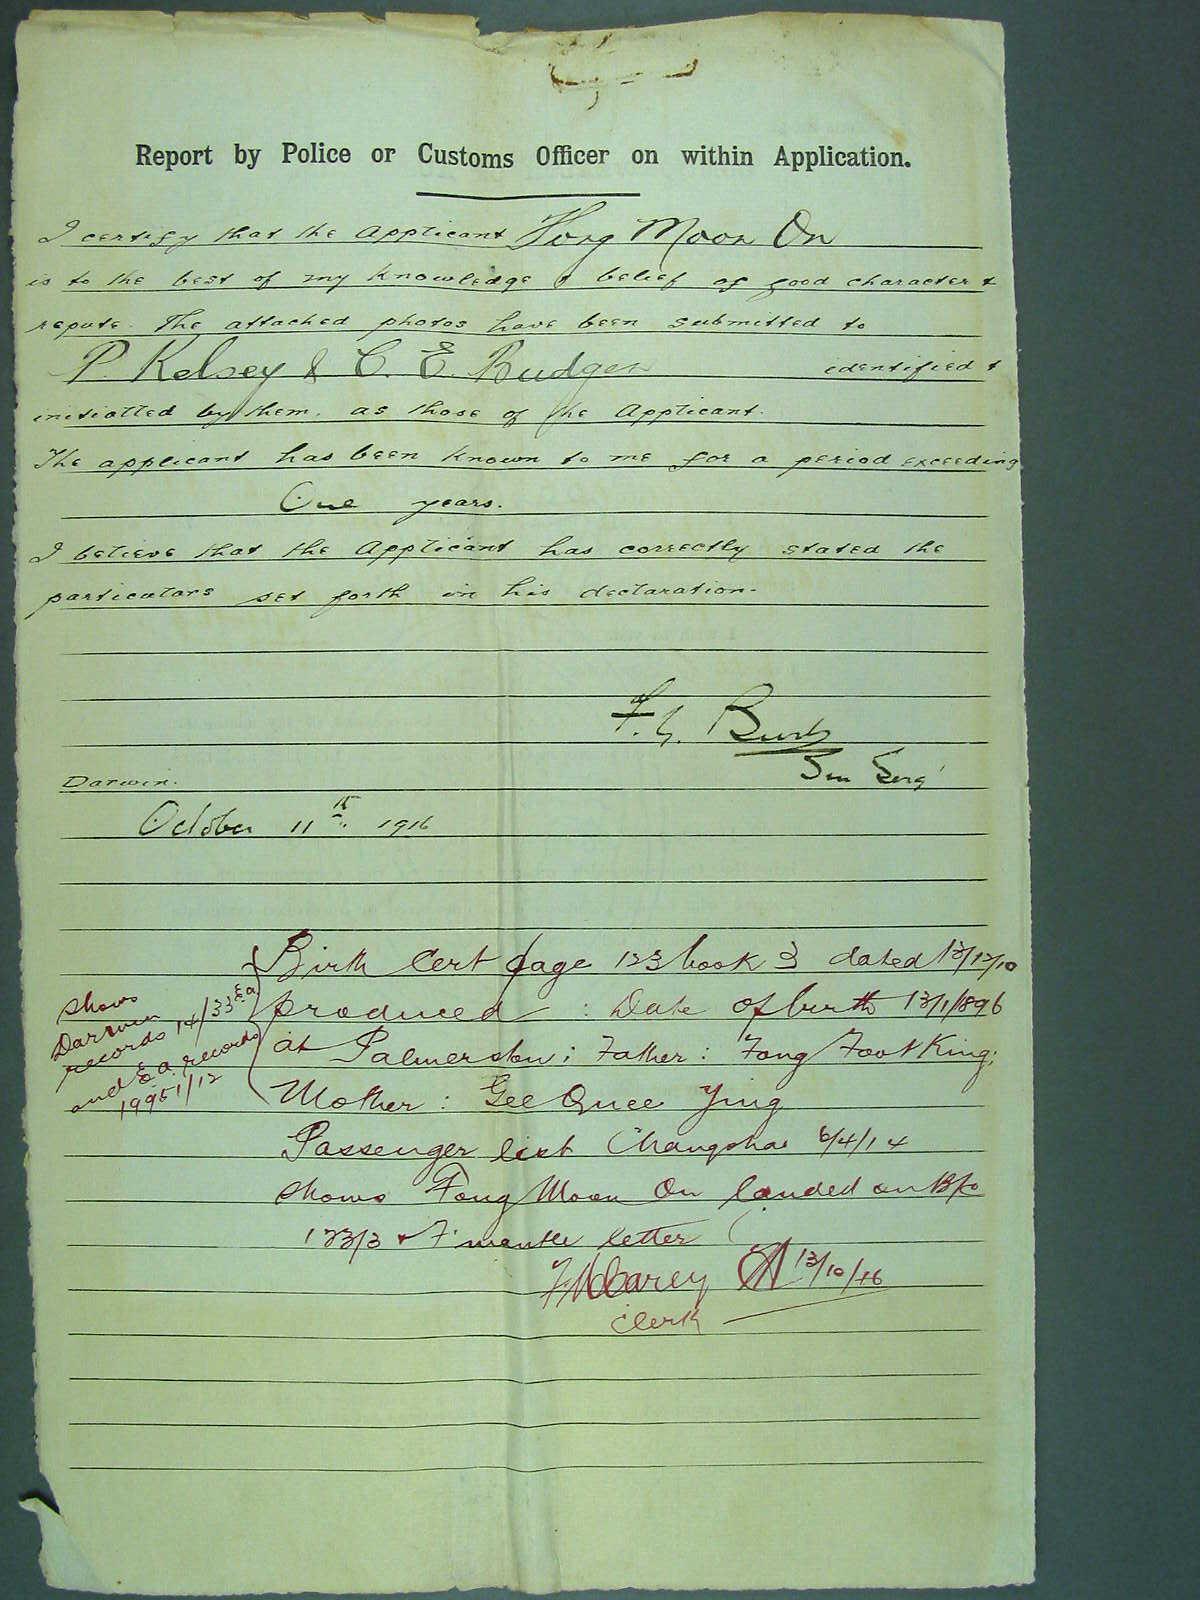 Report by Police or Customs Officer on within Application.
I certify that the Applicant Fong Moon On
is to the best of my knowledge & belief of good character &
repute. The attached photos have been submitted to
P. Kelsey & C. E. Budgen identified &
initialled by them. as those of the Applicant.
The applicant has been known to me for a period exceeding
One years.
I believe that the Applicant has correctly stated the
particulars set forth in his declaration.
F. G. Burt
Sen Serg
Darwin.
October 11th 1916
Birth Cert page 123 book 3 dated 13/12/10
produced : Date of birth 13/1/1896
at Palmerston; Father: Fong Foot King;
Mother: Gee Quee Ying
shows
Darwin
records 14/33 E.a
and E.a. records
19951/12
Passenger list Changsha 6/4/14
shows Fong Moon On landed on B/c
133/3 & F'mantle letter
Carey 13/10/16
Clerk